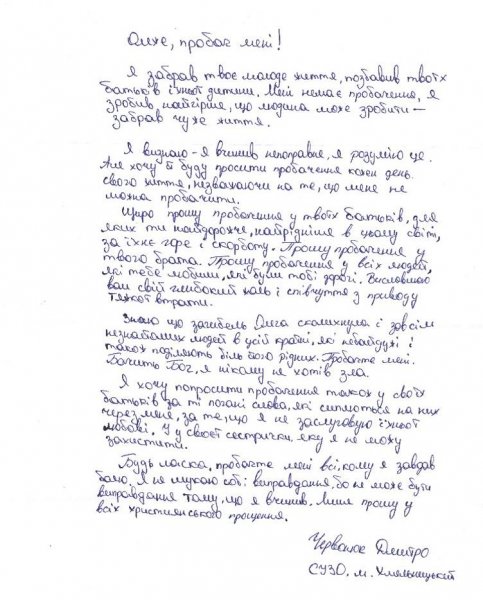 Олже, пробач мені!
Я забрав твоє молоде життя, позбавив твоїх
батьків їхньої дитини. Мені немає пробачення, я
зробив найгірше, що людина може зробити —
забрав чуже життя.
Я визнаю - я вчинив непоправне, я розумію це.
Але хочу й буду просити пробачення кожен день
свого життя, незважаючи на те, що мене не
можна пробачити.
Щиро прошу пробачення у твоїх батьків, для
яких ти найдорожче, найрідніше в цьому світі,
за їхнє горе і скорботу. Прошу пробачення у
твого брата. Прошу пробачення у всіх людей,
які тебе любили, які були тобі дорогі. Висловлюю
вам свій глибокий жаль і співчуття з приводу
тяжкої втрати.
Знаю що загибель Олега сколихнула і зовсім
незнайомих людей в усій країні, які небайдужі і
також поділяють біль його рідних. Пробачте мені.
Бачить Бог, я нікому не хотів зла.
Я хочу попросити пробачення також у своїх
батьків за ті погані слова, які сиплються на них
через мене, за те, що я не заслуговую їхньої
любові. І у своєї сестрички, яку я не можу
захистити.
Будь ласка, пробачте мені всі, кому я завдав
болю. Я не шукаю собі виправдання, бо не може бути
виправдання тому, що я вчинив. Лише прошу у
всіх християнського прощення.
Червонюк Дмитро
СУЗО, м. Хмельницький